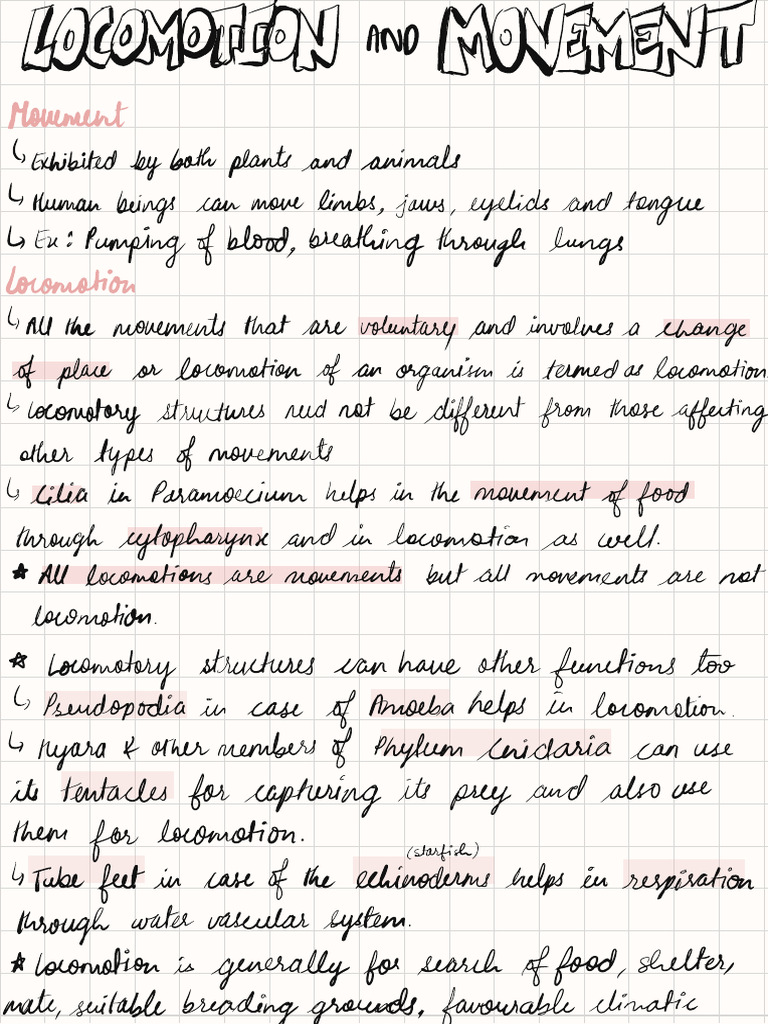 LOCOMOTION AND MOVEMENT
Movement
↳ Exhibited by both plants and animals
↳ Human beings can move limbs, jaws, eyelids and tongue
↳ Ex: Pumping of blood, breathing through lungs
Locomotion
↳ All the movements that are voluntary and involves a change
of place or locomotion of an organism is termed as locomotion
↳ Locomotory structures need not be different from those affecting
other types of movements
↳ Cilia in Paramoecium helps in the movement of food
through cytopharynx and in locomotion as well.
★ All locomotions are movements but all movements are not
locomotion.
☆ Locomotory structures can have other functions too
↳ Pseudopodia in case of Amoeba helps in locomotion.
↳ Hydra & other members of Phylum Cnidaria can use
its tentacles for capturing its prey and also use
them for locomotion.
(starfish)
↳ Tube feet in case of the echinoderms helps in respiration
through water vascular system.
★ Locomotion is generally for search of food, shelter,
mate, suitable breading grounds, favourable climatic